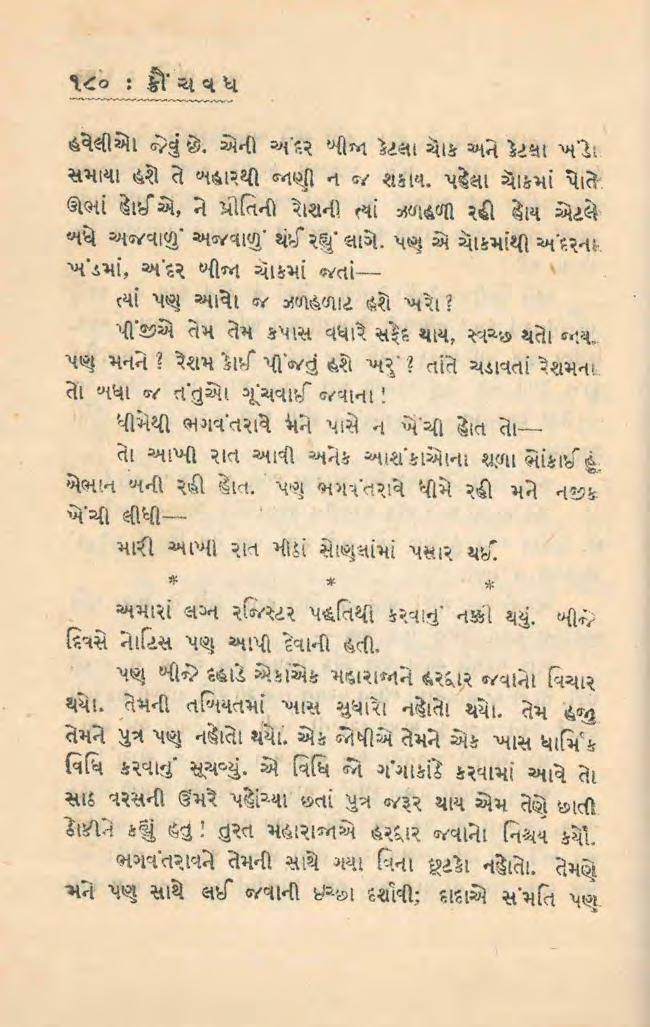 ૧૮૦ : ક્રૌંચવધ
હવેલીઓ જેવું છે. એની અંદર બીજા કેટલા ચોક અને કેટલા ખંડો
સમાયા હશે તે બહારથી જાણી ન જ શકાય. પહેલા ચોકમાં પોતે
ઊભાં હોઈએ, ને પ્રીતિની રોશની ત્યાં ઝળહળી રહી હોય એટલે
બધે અજવાળું અજવાળું થઈ રહ્યું લાગે. પણ એ ચોકમાંથી અંદરના
ખંડમાં, અંદર બીજા ચોકમાં જતાં—
ત્યાં પણ આવો જ ઝળહળાટ હશે ખરો?
પીંજીએ તેમ તેમ કપાસ વધારે સફેદ થાય, સ્વચ્છ થતો જાય.
પણ મનને? રેશમ કોઈ પીંજતું હશે ખરું? તાંતે ચડાવતાં રેશમના
તો બધા જ તંતુઓ ગૂંચવાઈ જવાના!
ધીમેથી ભગવંતરાવે મને પાસે ન ખેંચી હોત તો—
તો આખી રાત આવી અનેક આશંકાઓના શૂળા ભોંકાઈ હું
બેભાન બની રહી હોત. પણ ભગવંતરાવે ધીમે રહી મને નજીક
ખેંચી લીધી—
મારી આખી રાત મીઠાં સોણલાંમાં પસાર થઈ.
* * *
અમારાં લગ્ન રજિસ્ટર પદ્ધતિથી કરવાનું નક્કી થયું. બીજે
દિવસે નોટિસ પણ આપી દેવાની હતી.
પણ બીજે દહાડે એકાએક મહારાજાને હરદ્વાર જવાનો વિચાર
થયો. તેમની તબિયતમાં ખાસ સુધારો નહોતો થયો. તેમ હજી
તેમને પુત્ર પણ નહોતો થયો. એક જોષીએ તેમને એક ખાસ ધાર્મિક
વિધિ કરવાનું સૂચવ્યું. એ વિધિ જો ગંગાકાંઠે કરવામાં આવે તો
સાઠ વરસની ઉંમરે પહોંચ્યા છતાં પુત્ર જરૂર થાય એમ તેણે છાતી
ઠોકીને કહ્યું હતું! તુરત મહારાજાએ હરદ્વાર જવાનો નિશ્ચય કર્યો.
ભગવંતરાવને તેમની સાથે ગયા વિના છૂટકો નહોતો. તેમણે
મને પણ સાથે લઈ જવાની ઇચ્છા દર્શાવી; દાદાએ સંમતિ પણ